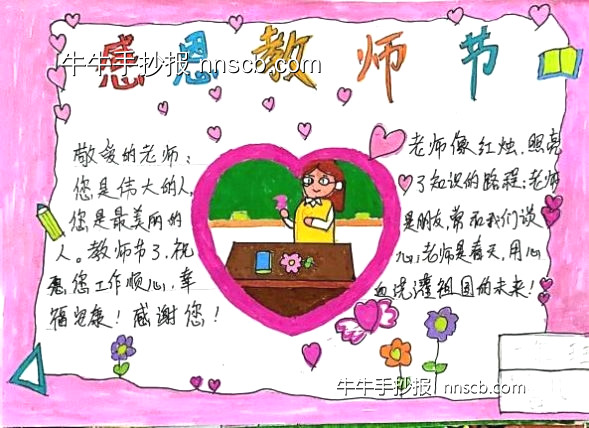 感恩教师节
牛牛手抄报 nnscb.com
敬爱的老师：
您是伟大的人，
您是最美丽的
人。教师节了，祝
愿您工作顺心，幸
福安康！感谢您！
老师像红烛，照亮
了知识的路程；老师
是朋友，常和我们谈
心；老师是春天，用心
血浇灌祖国的未来！
牛牛手抄报 nnscb.com